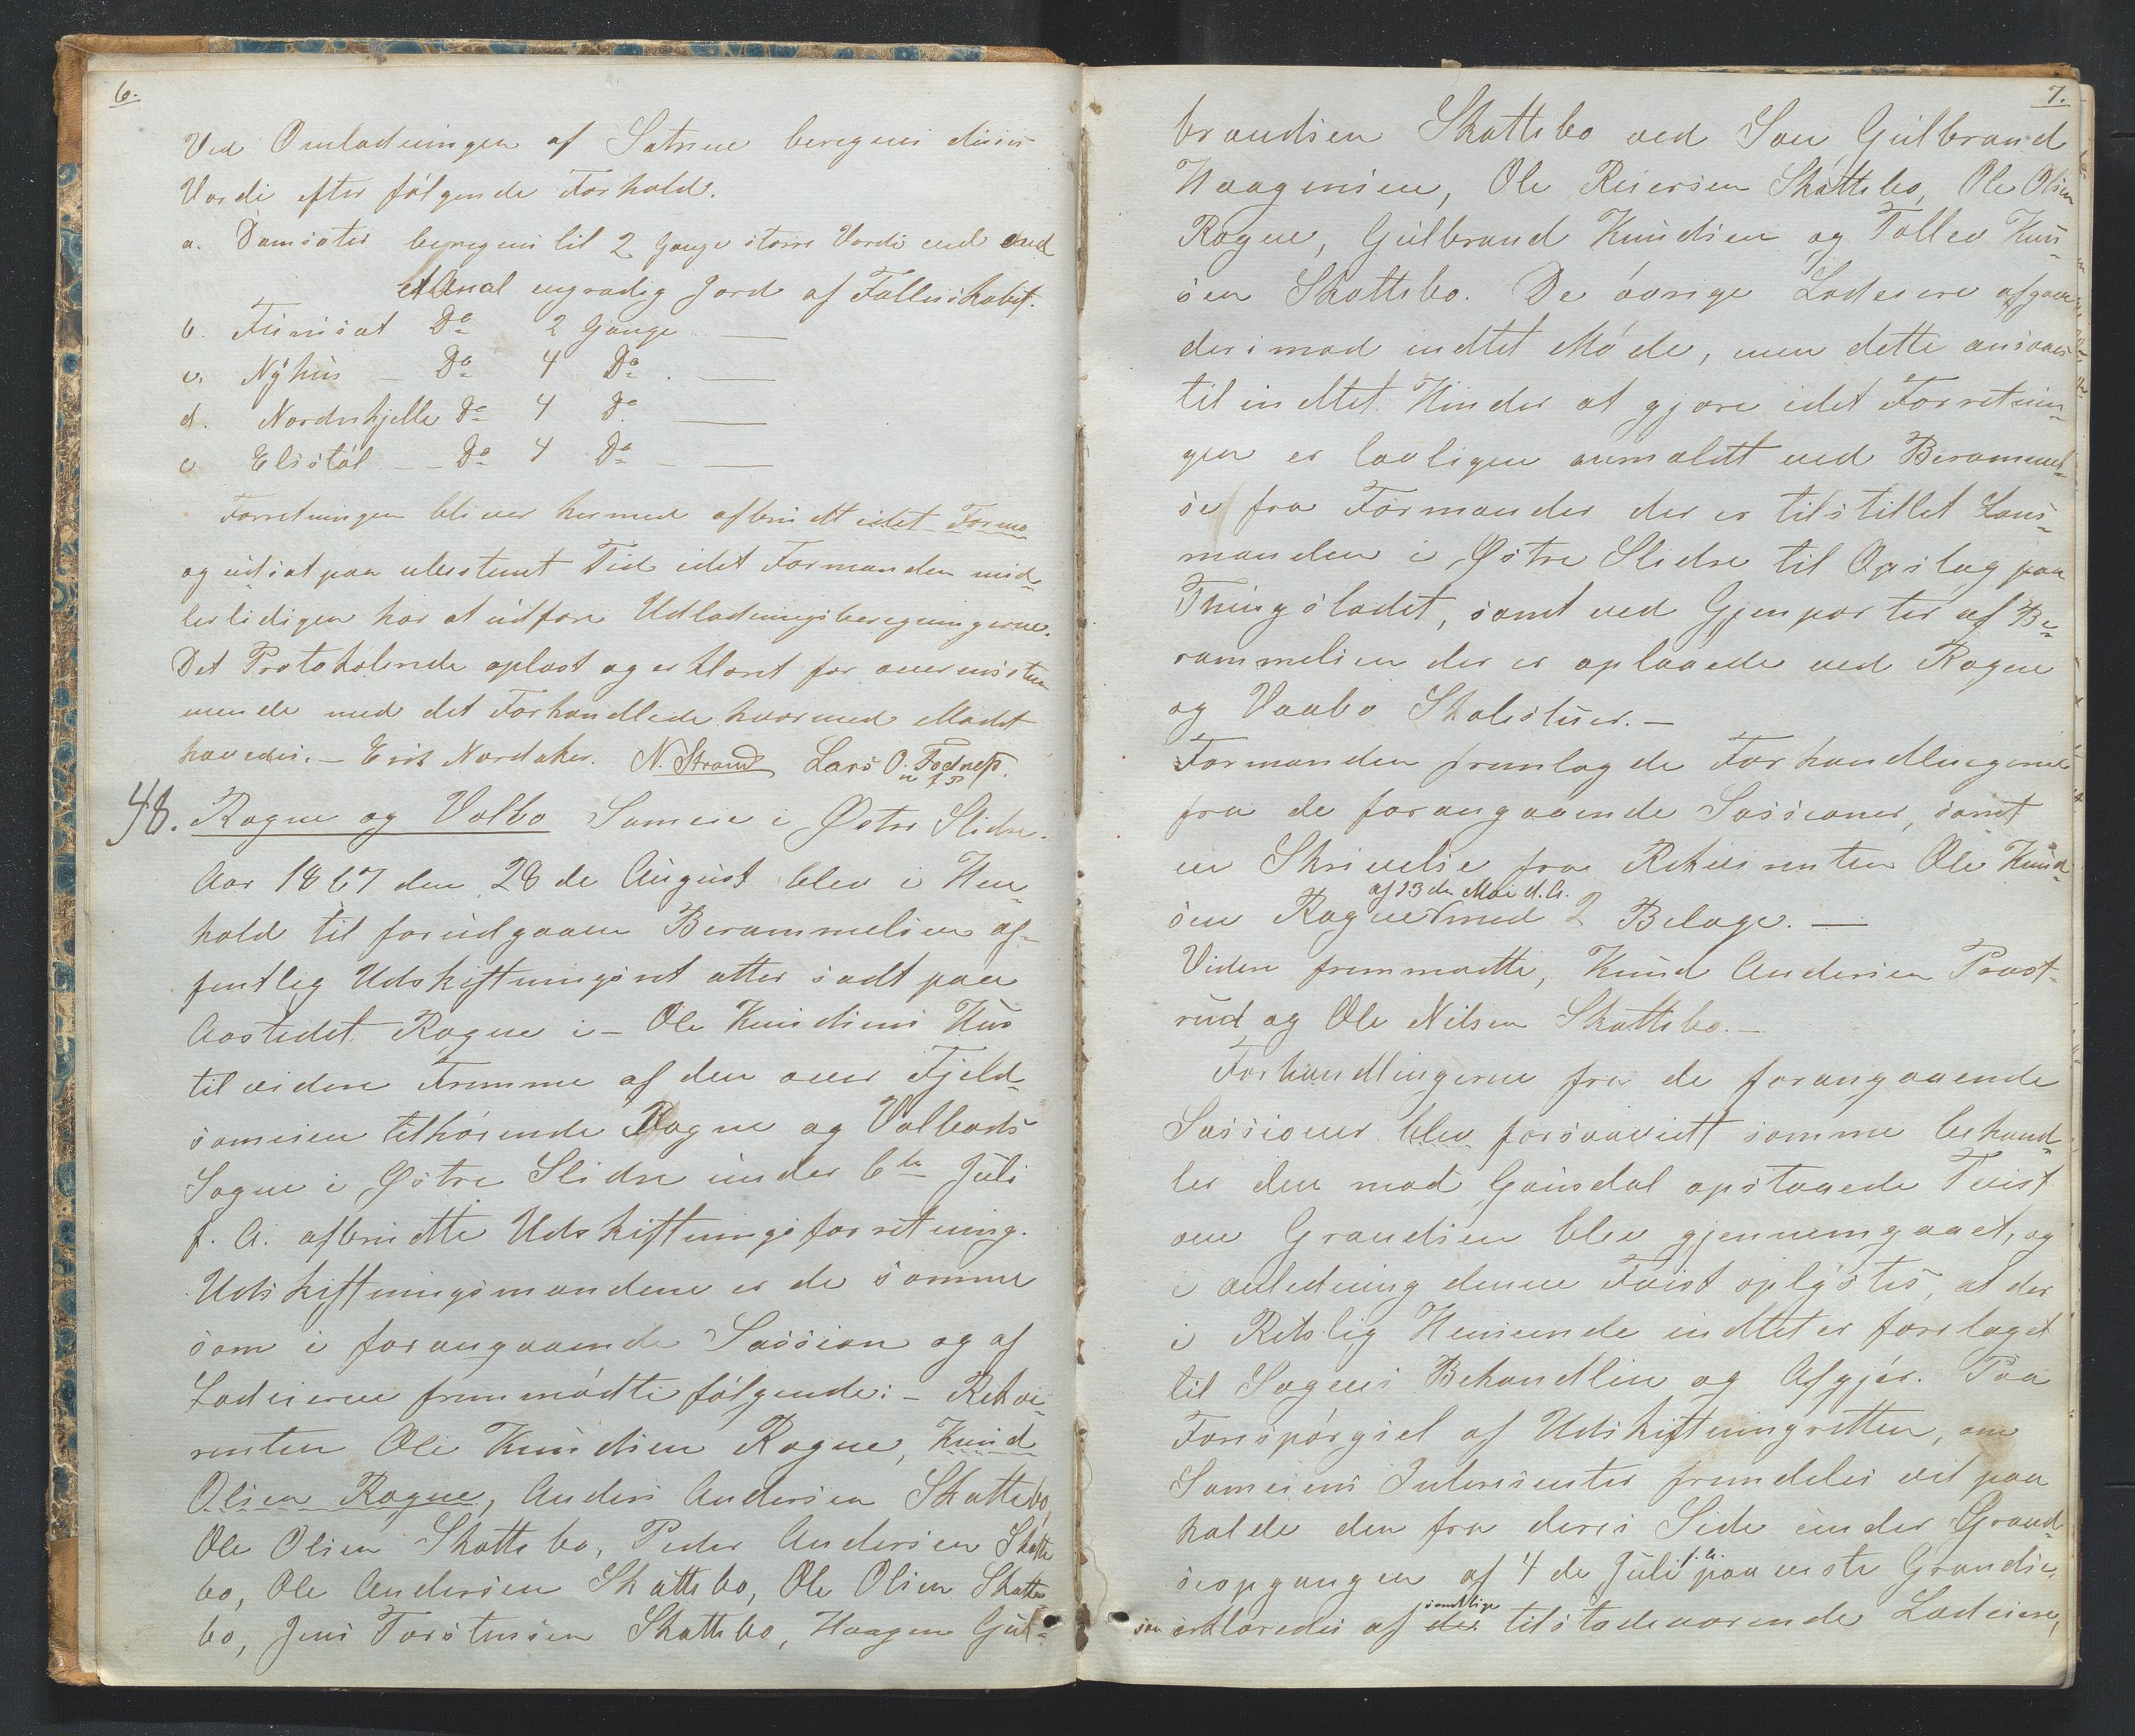 6.
Ved Omladningen af Sætrene beregnes disses
Værdi efter følgende Forhold.
a. Damsæter beregnes til 2 Gange større Værdi end
et Anal engradig Jord af Fællesskabet.
b. Finisæt Do 2 Gange
c. Nÿhus - Do 4 Do.
d. Nordrekjelle Do 4 Do
e Elsstøl - - Do 4 Do -
Forretningen bliver hermed afbrudt idet Forma
og udsat paa ubestemt Tid idet Formanden mid-
lertidigen har at udføre Udlodningsberegningerne.
Det Protokolerede oplæst og erklæret for overensstem
mende med det Forhandlede hvormed Mødet
hævedes. - Erik Nordaker. N. Strand Lars O. Fodness.
48. Rogne og Volbo Sameie i Østre Slidre.
Aar 1867 den 28de August blev i Hen-
hold til forudgaaen Berammelsen of-
fentlig Udskiftningsret atter sadt paa
Aastedet Rogne i - Ole Knudsens Hus
til videre Fremme af den over Fjeld-
sameien tilhørende Rogne og Volbods
Sogne i Østre Slidre under 6te Juli
f. A. afbrudte Udskiftningsforretning.
Udskiftningsmændene er de samme
som i forangaaende Session og af
Lodeierne fremmødte følgende: - Rekvi-
renten Ole Knudsen Rogne, Knud
Olsen Rogne, Anders Andersen Skattebo,
Ole Olsen Skattebo, Peder Andersen Skatte
bo, Ole Andersen Skattebo, Ole Olsen Skatte-
bo, Jens Torstensen Skattebo, Haagen Gul-
7.
brandsen Skattebo ved Søn Gulbrand
Haagensen, Ole Reiersen Skattebo, Ole Olsen
Rogne, Gulbrand Knudsen og Tollev Knu-
sen Skattebo. De øvrige Lodeiere afgave
derimod indtet Møde, men dette ansaaes
til indtet Hinder at gjøre idet Forretnin-
gen er lovligen anmeldt ved Berammel-
se fra Formanden der er tilstillet Lens-
manden i Østre Slidre til Opslag paa
Thingstedet, samt ved Gjenparter af Be-
rammelsen der er oplagte ved Rogne
og Vaabo Skolestuer. -
Formanden fremlagde Forhandlingerne
fra de forangaaende Sessioner, samt
en Skrivelse fra Rekvirenten Ole Knud-
af 13de Mai d.A.
sen Rogne med 2 Belage. -
Videre fremmødte, Knud Andersen Præst-
rud og Ole Nilsen Skattebo. -
Forhandlingerne fra de forangaaende
Sessioner blev forsaavidt somme behand-
ler den mod Gausdal opstaaede Tvist
om Grændsen blev gjennemgaaet, og
i anledning denne Tvist oplÿstes, at der
i Retslig Henseende indtet er foretaget
til Sagens Behandling og Afgjør. Paa
Forespørgsel af Udskiftningretten, om
Sameiens Interesenter fremdeles vil paa
holde den fra deres Side under Grænd-
seopgangen af 4de Juli f. A. paaviste Grændse,
saa erklæredes af samtlige tilstedeværende Lodeiere,